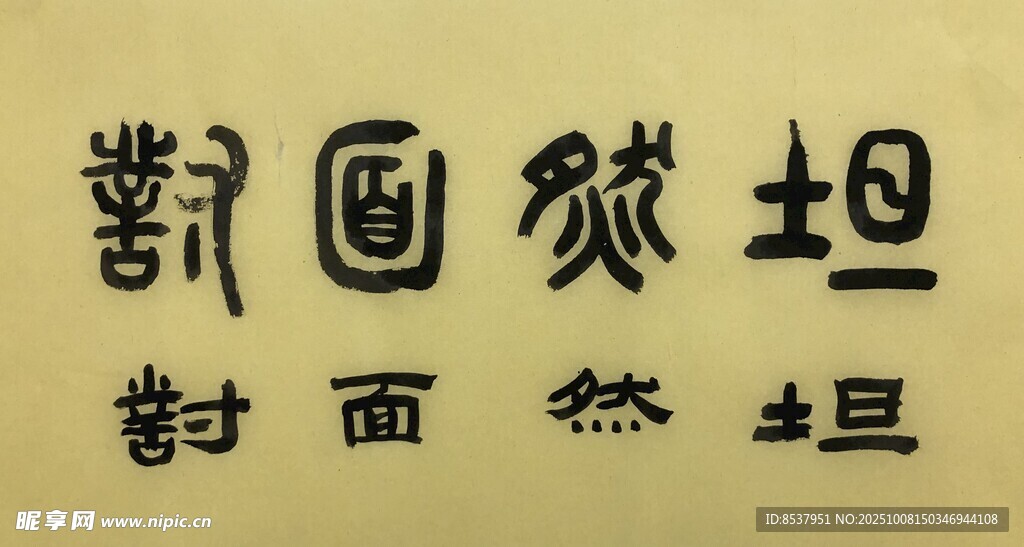 坦然面對
坦然面對
昵享网 www.nipic.cn
ID:8537951 NO:20251008150346944108